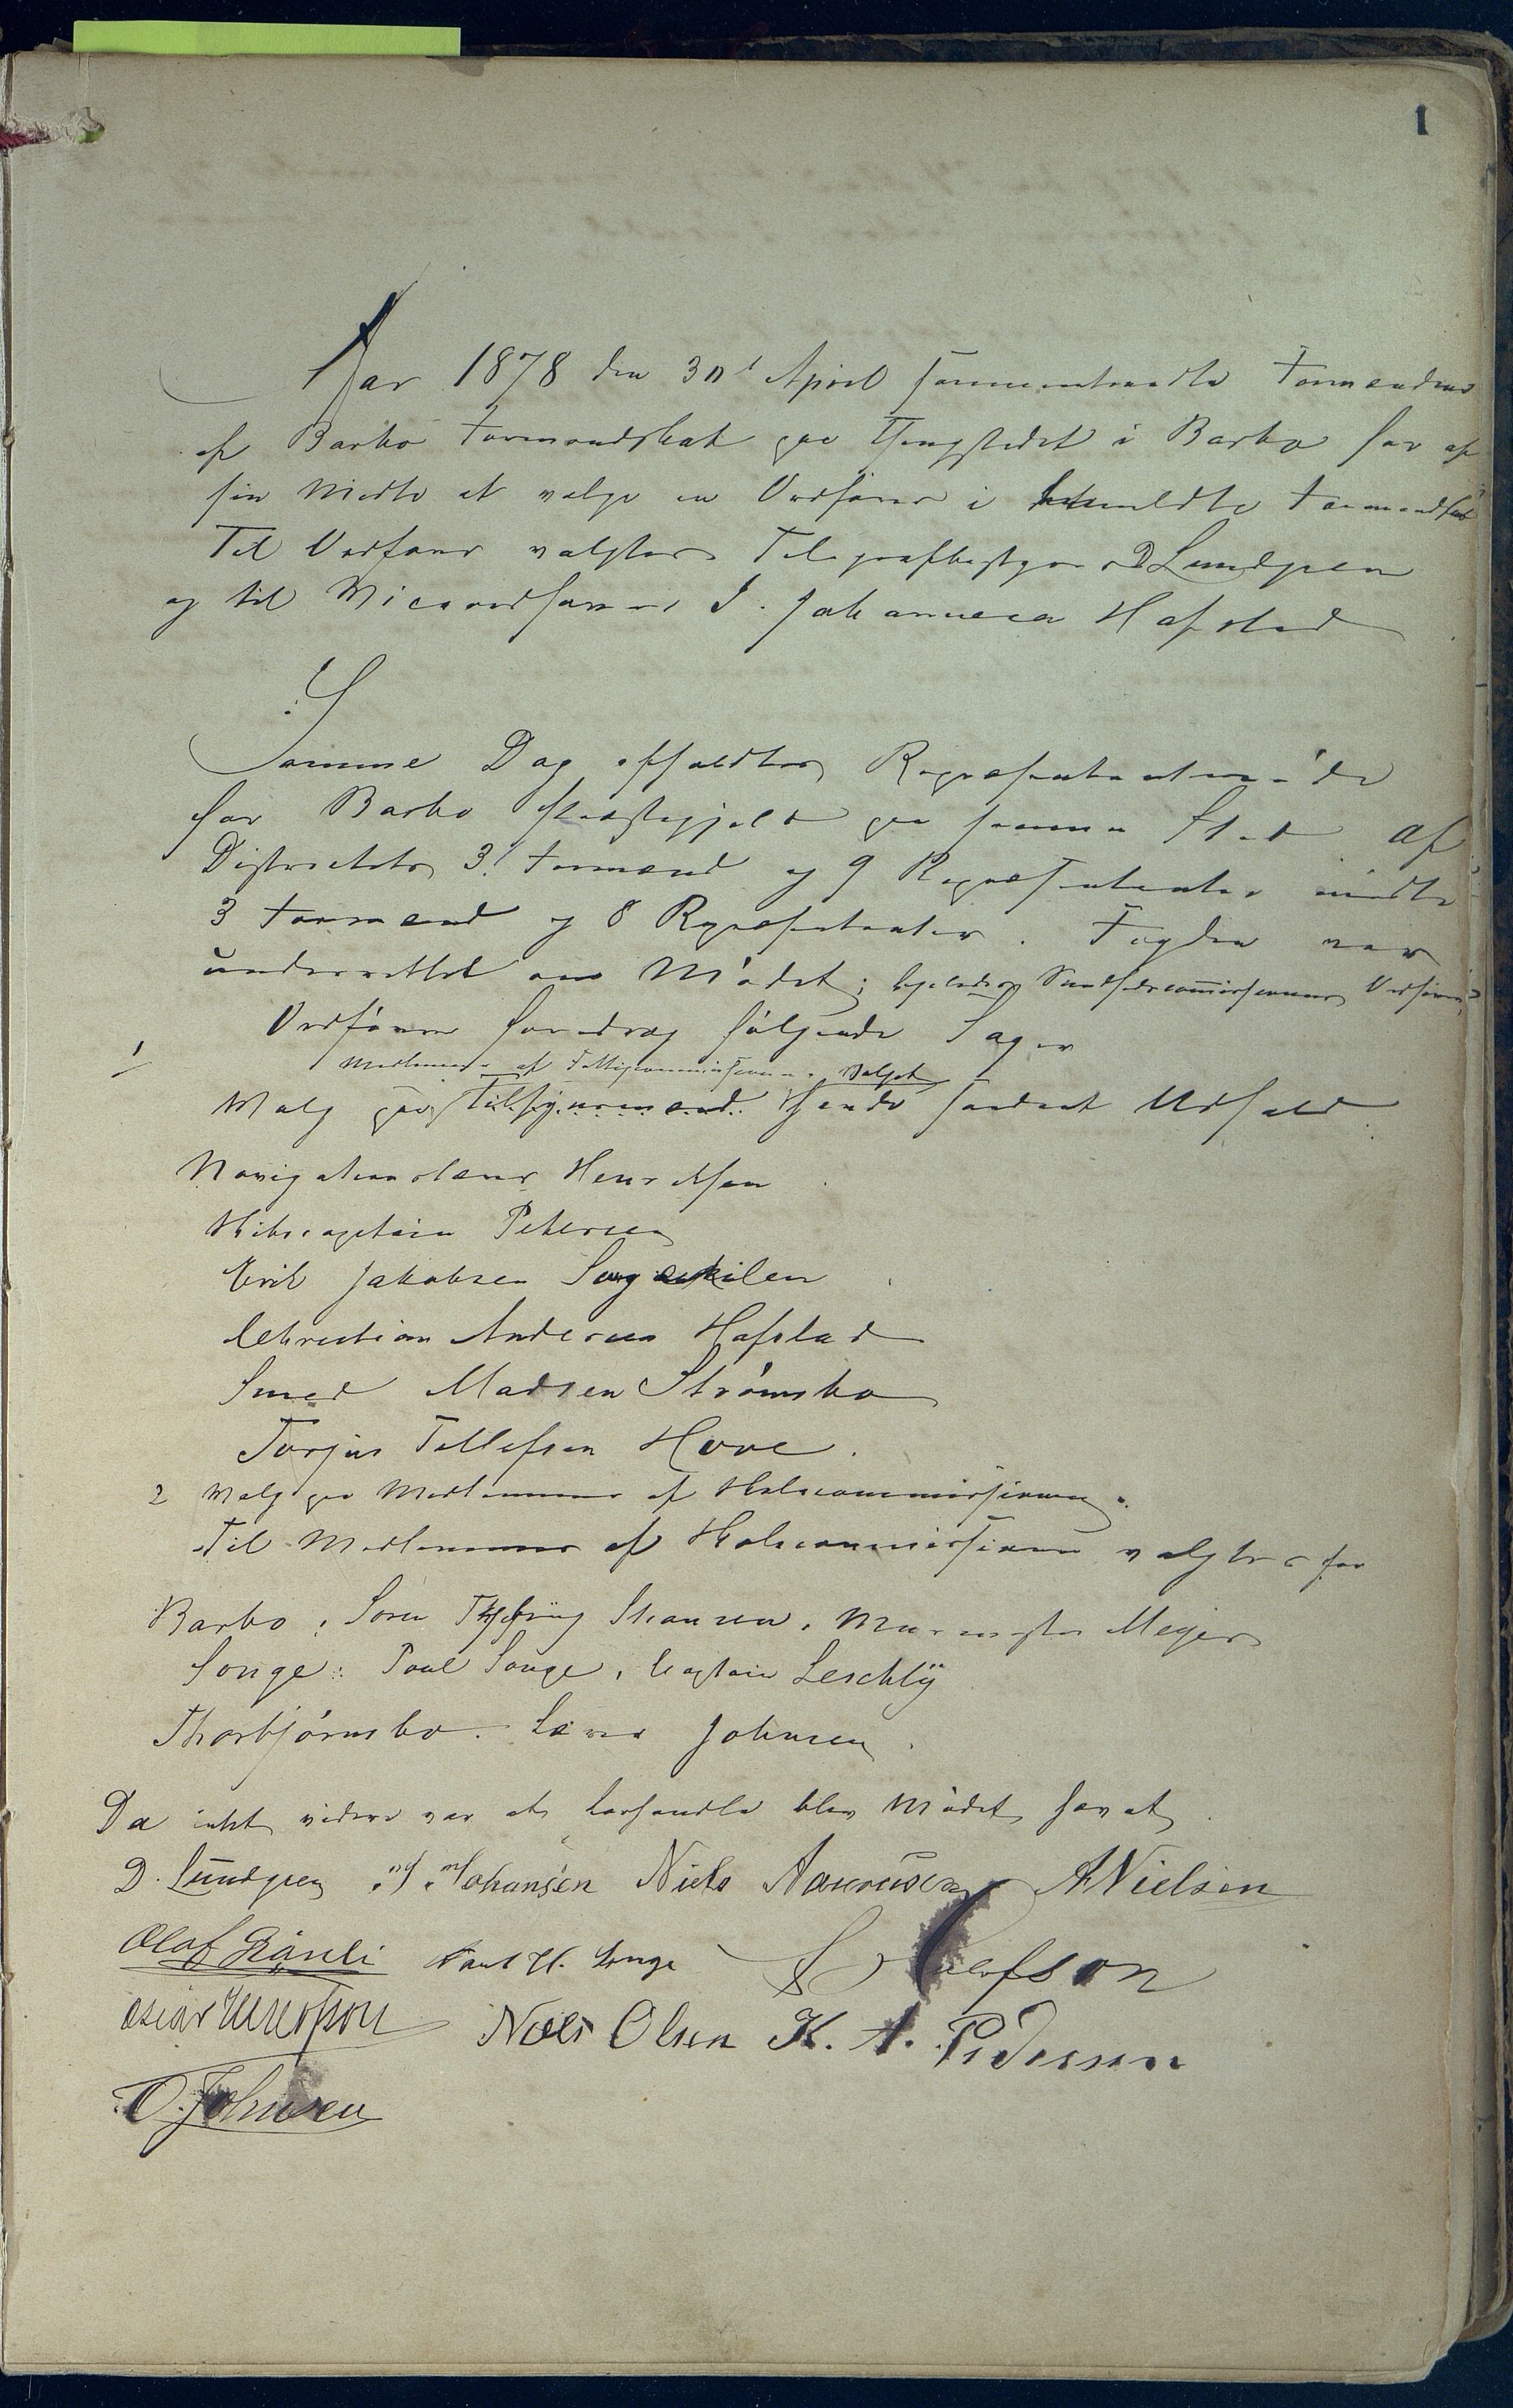 1
Aar 1878 den 30t April sammentraadte Formændene
af Barbo Formandskab paa Thingstedet i Barbo for af
sin Midte at vælge en Ordfører i bemeldte Formandskab
Til Ordfører valgtes Telegrafbestyrer D Lundgren
og til Viceordfører J. Johannesen Hafstad
Samme Dag afholdtes Repræsentantmøde
for Barbo Præstegjeld paa samme Sted af
Distriktets 3 Formænd og 9 Repræsentanter mødte
3 Formænd og 8 Repræsentanter. Fogden var
underrettet om Mødet; ligeledes Sundhedscommissionens Ordfører
Ordføreren foredrog følgende Sager
1
Medlemmer af Fattigcommissionen. Valget
Valg paa Tilsynsmænd. havde saadant Udfald
Navigationslærer Henriksen
Skibscaptein Petersen
Erik Jakobsen Songekilen
Christian Andersen Hafstad
Smed Madsen Strømsbo
Torjus Tellefsen Hove.
2 Valg paa Medlemmer af Skolecommissionen.
Til Medlemmer af Skolecommissionen valgtes for
Barbo: Søren Stiansen, Murmester Meyer
Songe: Poul Songe, Captein Leschly
Thorbjørnsbo. Lærer Johnsen.
Da intet videre var at forhandle blev Mødet hævet
D. Lundgren J. Johansen Niels A Nielsen
Olaf Paul H. Songe
Oscar Niels Olsen K. A. Pedersen
O. Johnsen